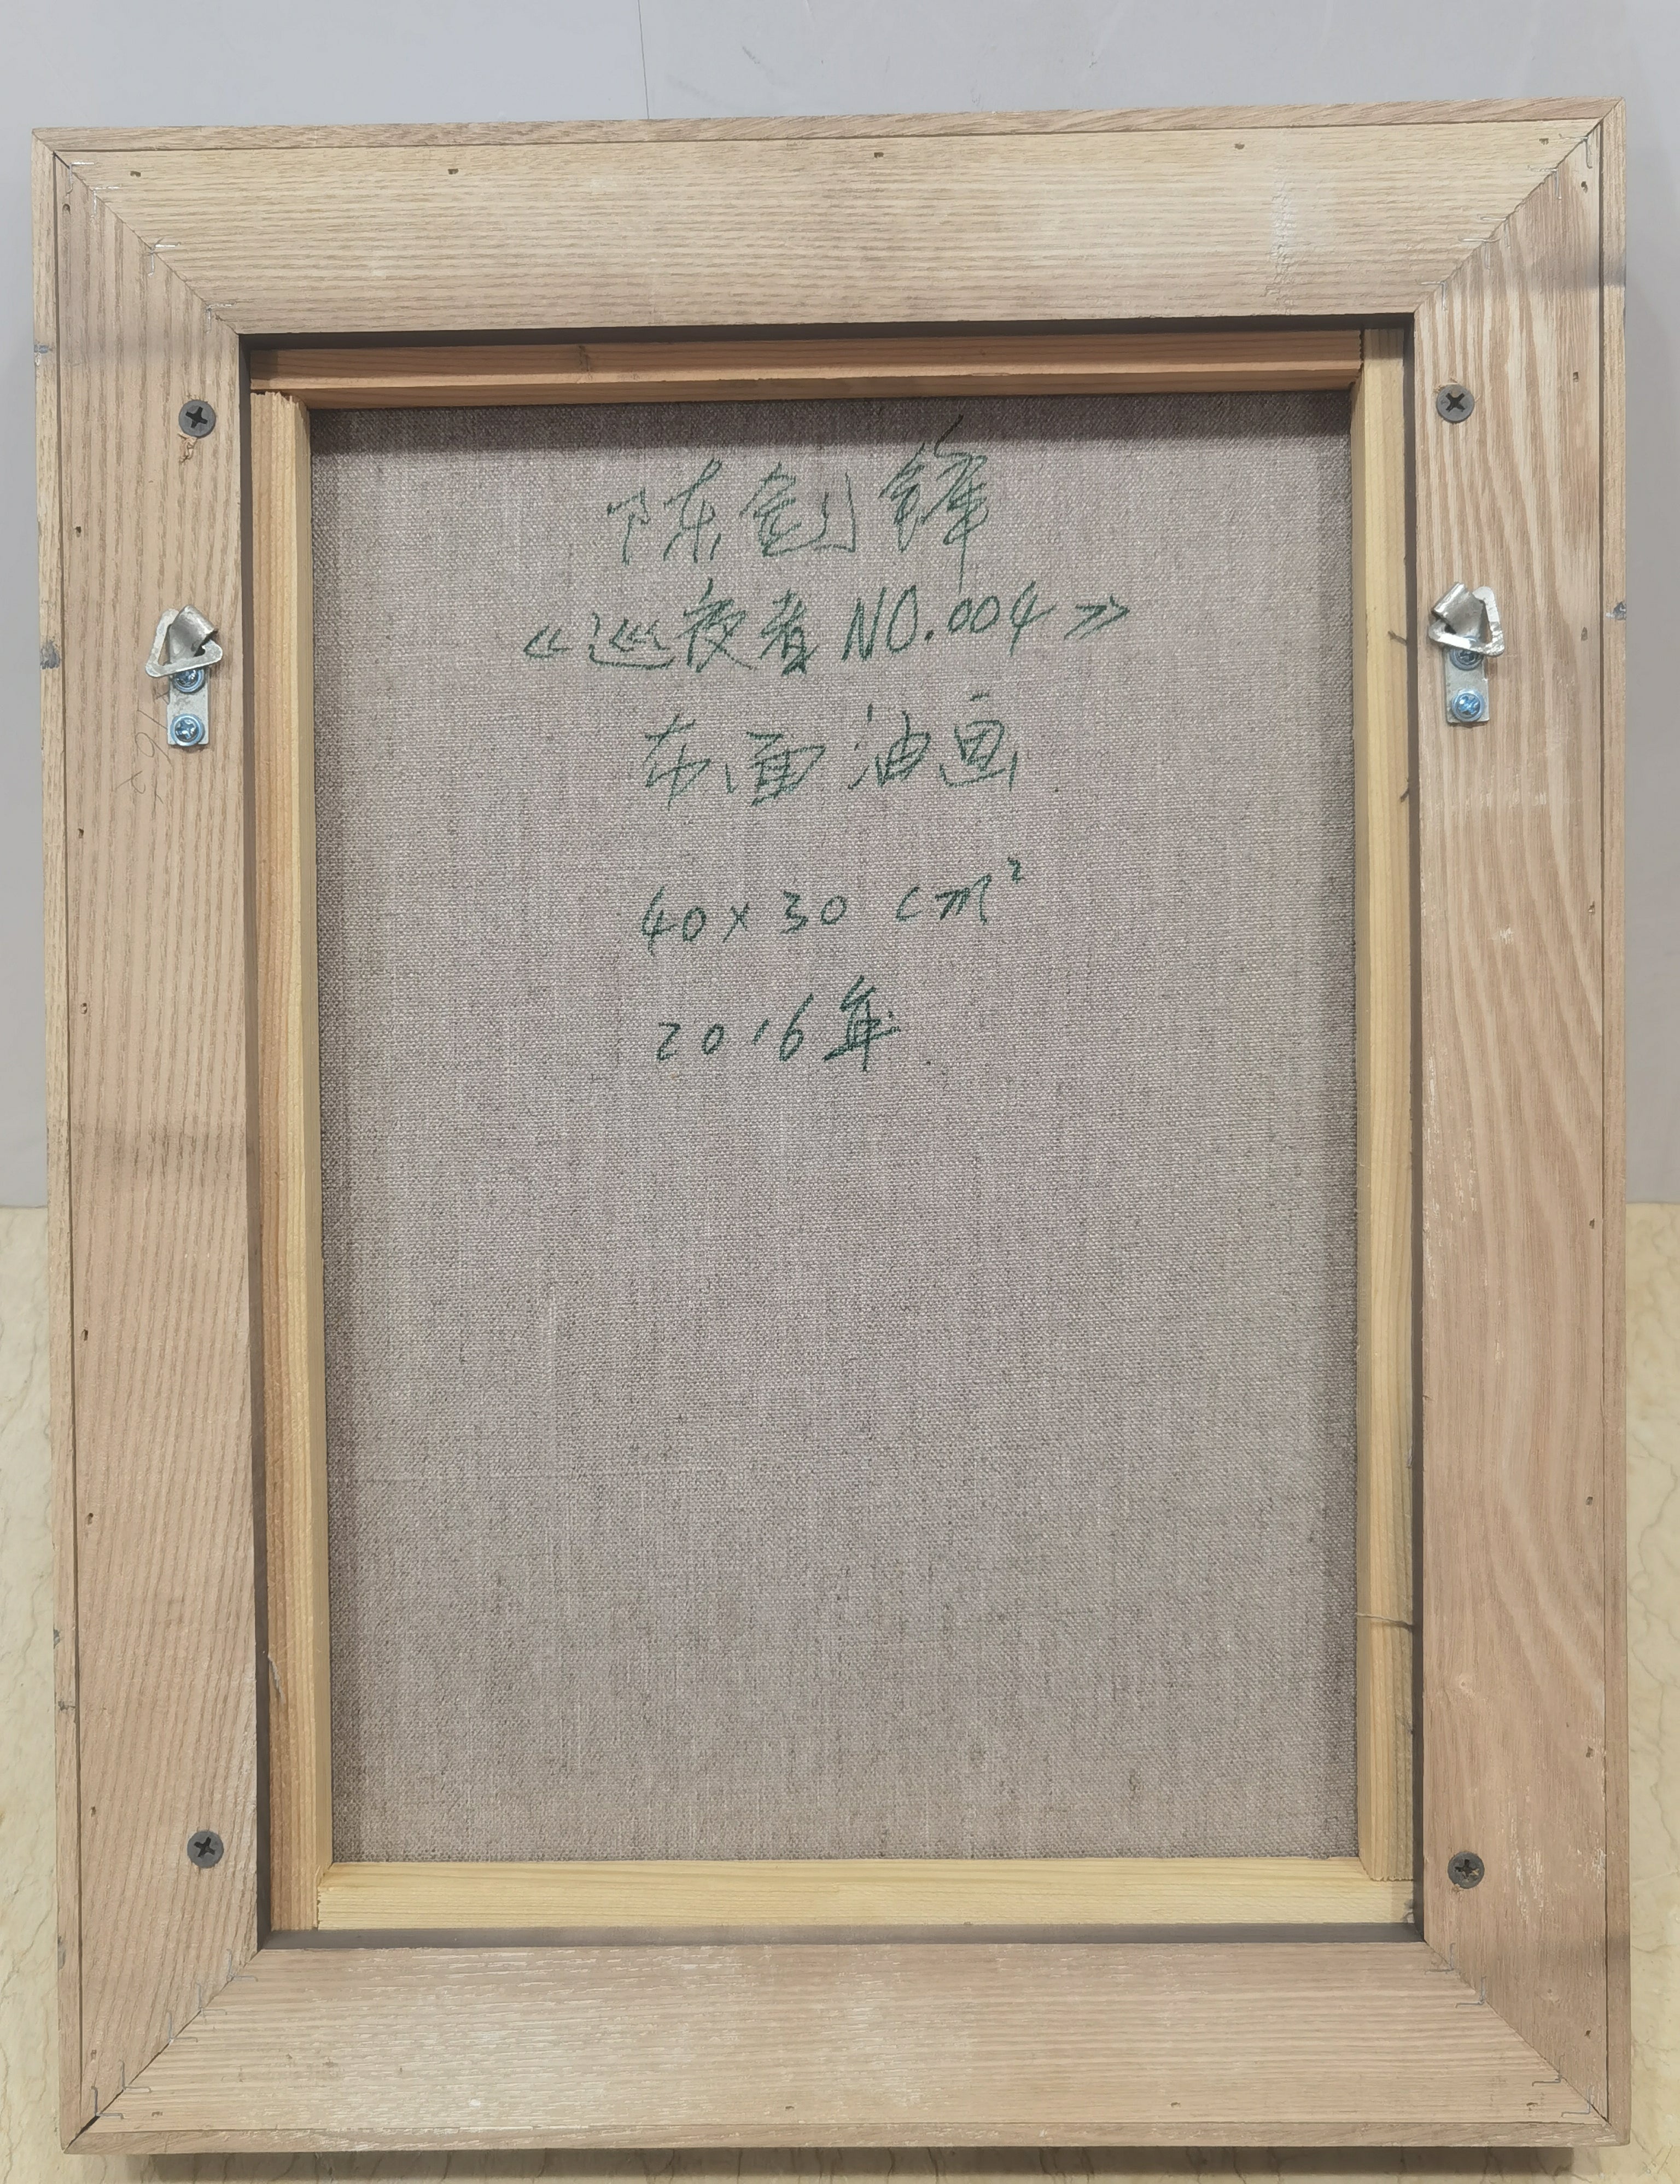 陈剑锋
《巡夜者NO.004》
布面油画
40×30 cm²
2016年